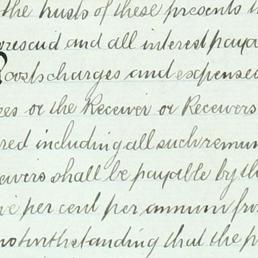 the trusts of these presents
oresaid and all interest paya
costs charges and expenses
es or the Receiver or Receivers
red including all such remun
eivers shall be payable by th
ive per cent per annum fro
notwithstanding that the p